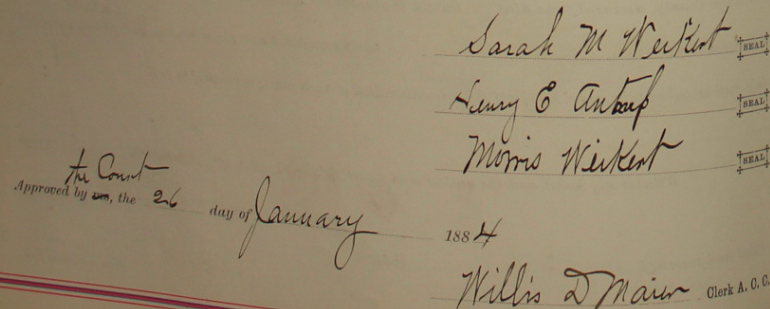 Sarah M Weikert SEAL
Henry E Antrup SEAL
Morris Weikert SEAL
the Court
Approved by me, the 26 day of January 1884
Willis D Maier Clerk A. C. C.